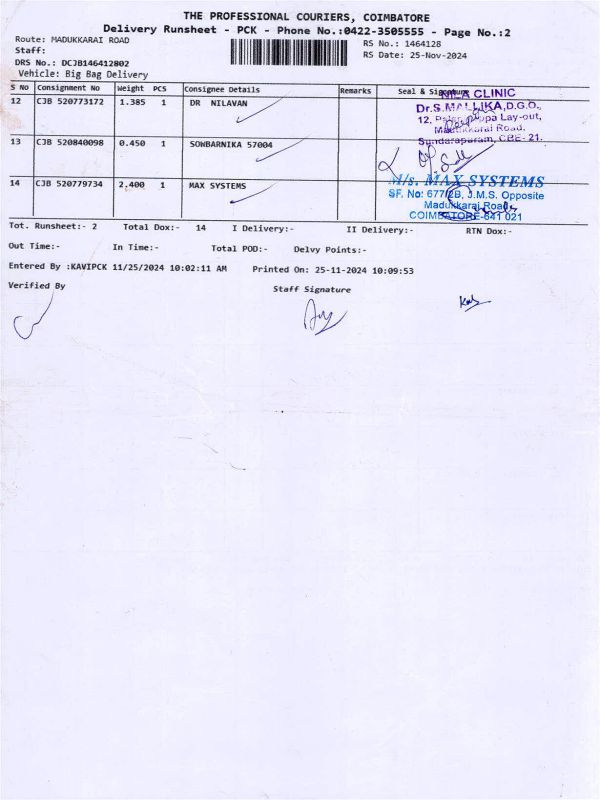 THE PROFESSIONAL COURIERS, COIMBATORE
Delivery Runsheet - PCK - Phone No.:0422-3505555 - Page No.:2
Route: MADUKKARAI ROAD
RS No.: 1464128
Staff:
RS Date: 25-Nov-2024
DRS No.: DCJB146412802
Vehicle: Big Bag Delivery
S No Consignment No Weight PCS Consignee Details Remarks Seal & Signature
12 CJB 520773172 1.385 1 DR NILAVAN
NILA CLINIC
Dr.S.MALLIKA,D.G.O.,
12, Lay-out,
Madukkarai Road.
Sundarapuram, CBE- 21.
13 CJB 520840098 0.450 1 SOWBARNIKA 57004
14 CJB 520779734 2.400 1 MAX SYSTEMS
M/s. MAX SYSTEMS
SF. No: 677/2B, J.M.S. Opposite
Madukkarai Road,
COIMBATORE-641 021
Tot. Runsheet:- 2 Total Dox:- 14 I Delivery:- II Delivery:- RTN Dox:-
Out Time:- In Time:- Total POD:- Delvy Points:-
Entered By :KAVIPCK 11/25/2024 10:02:11 AM Printed On: 25-11-2024 10:09:53
Verified By Staff Signature